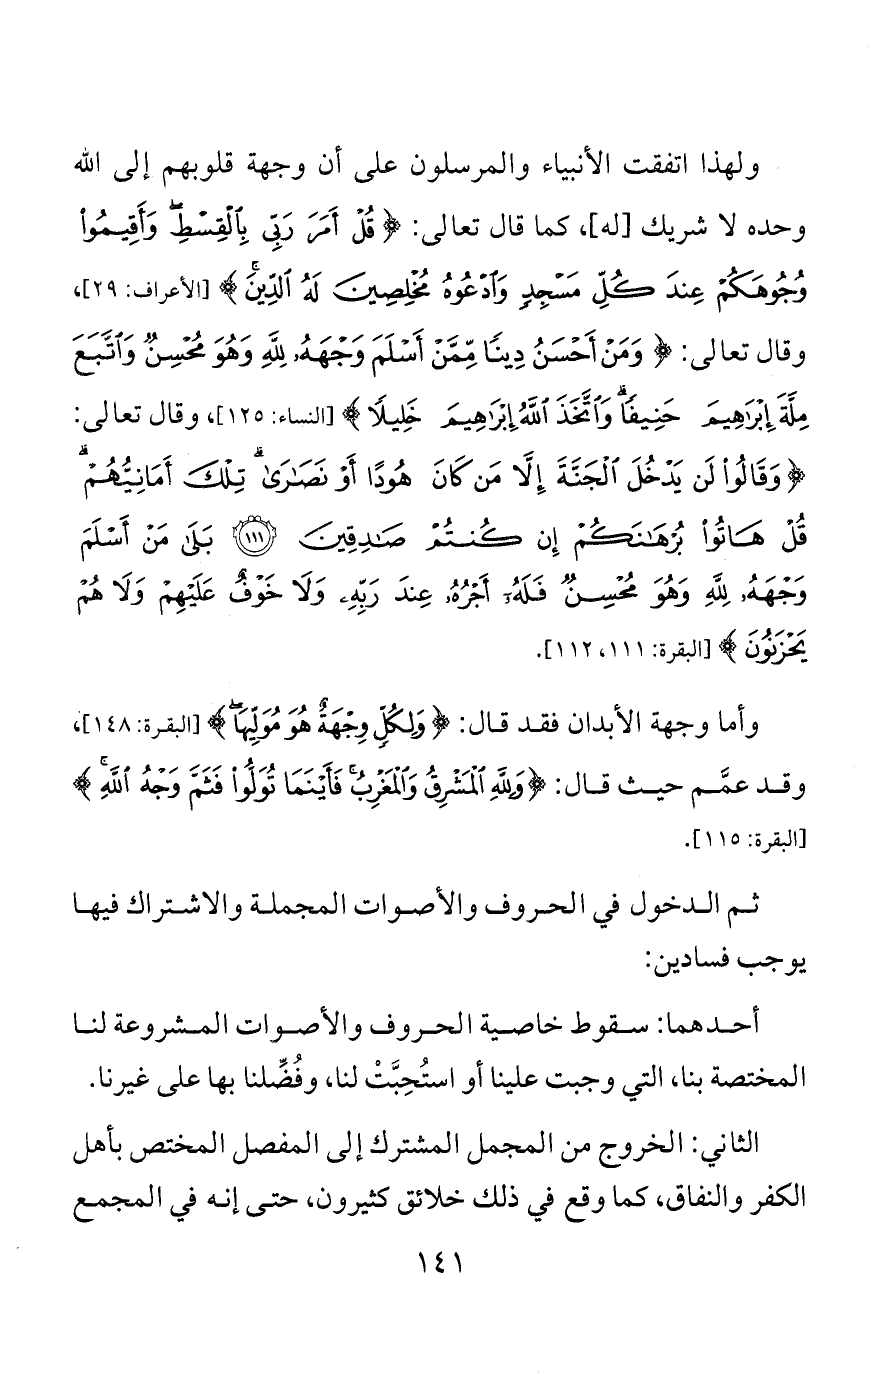 ولهذا اتفقت الأنبياء والمرسلون على أن وجهة قلوبهم إلى الله
وحده لا شريك [له]، كما قال تعالى: ﴿قُلْ أَمَرَ رَبِّي بِٱلْقِسْطِۖ وَأَقِيمُواْ
وُجُوهَكُمْ عِندَ كُلِّ مَسْجِدٍ وَٱدْعُوهُ مُخْلِصِينَ لَهُ ٱلدِّينَۚ﴾ [الأعراف: ٢٩]،
وقال تعالى: ﴿وَمَنْ أَحْسَنُ دِينًا مِّمَّنْ أَسْلَمَ وَجْهَهُۥ لِلَّهِ وَهُوَ مُحْسِنٌ وَٱتَّبَعَ
مِلَّةَ إِبْرَٰهِيمَ حَنِيفًاۗ وَٱتَّخَذَ ٱللَّهُ إِبْرَٰهِيمَ خَلِيلًا﴾ [النساء: ١٢٥]، وقال تعالى:
﴿وَقَالُواْ لَن يَدْخُلَ ٱلْجَنَّةَ إِلَّا مَن كَانَ هُودًا أَوْ نَصَٰرَىٰۗ تِلْكَ أَمَانِيُّهُمْۗ
قُلْ هَاتُواْ بُرْهَٰنَكُمْ إِن كُنتُمْ صَٰدِقِينَ ١١١ بَلَىٰ مَنْ أَسْلَمَ
وَجْهَهُۥ لِلَّهِ وَهُوَ مُحْسِنٌ فَلَهُۥٓ أَجْرُهُۥ عِندَ رَبِّهِۦ وَلَا خَوْفٌ عَلَيْهِمْ وَلَا هُمْ
يَحْزَنُونَ﴾ [البقرة: ١١١، ١١٢].
وأما وجهة الأبدان فقد قال: ﴿وَلِكُلٍّ وِجْهَةٌ هُوَ مُوَلِّيهَاۖ﴾ [البقرة: ١٤٨]،
وقد عمَّم حيث قال: ﴿وَلِلَّهِ ٱلْمَشْرِقُ وَٱلْمَغْرِبُۚ فَأَيْنَمَا تُوَلُّواْ فَثَمَّ وَجْهُ ٱللَّهِۚ﴾
[البقرة: ١١٥].
ثم الدخول في الحروف والأصوات المجملة والاشتراك فيها
يوجب فسادين:
أحدهما: سقوط خاصية الحروف والأصوات المشروعة لنا
المختصة بنا، التي وجبت علينا أو استُحِبَّتْ لنا، وفُضِّلنا بها على غيرنا.
الثاني: الخروج من المجمل المشترك إلى المفصل المختص بأهل
الكفر والنفاق، كما وقع في ذلك خلائق كثيرون، حتى إنه في المجمع
١٤١